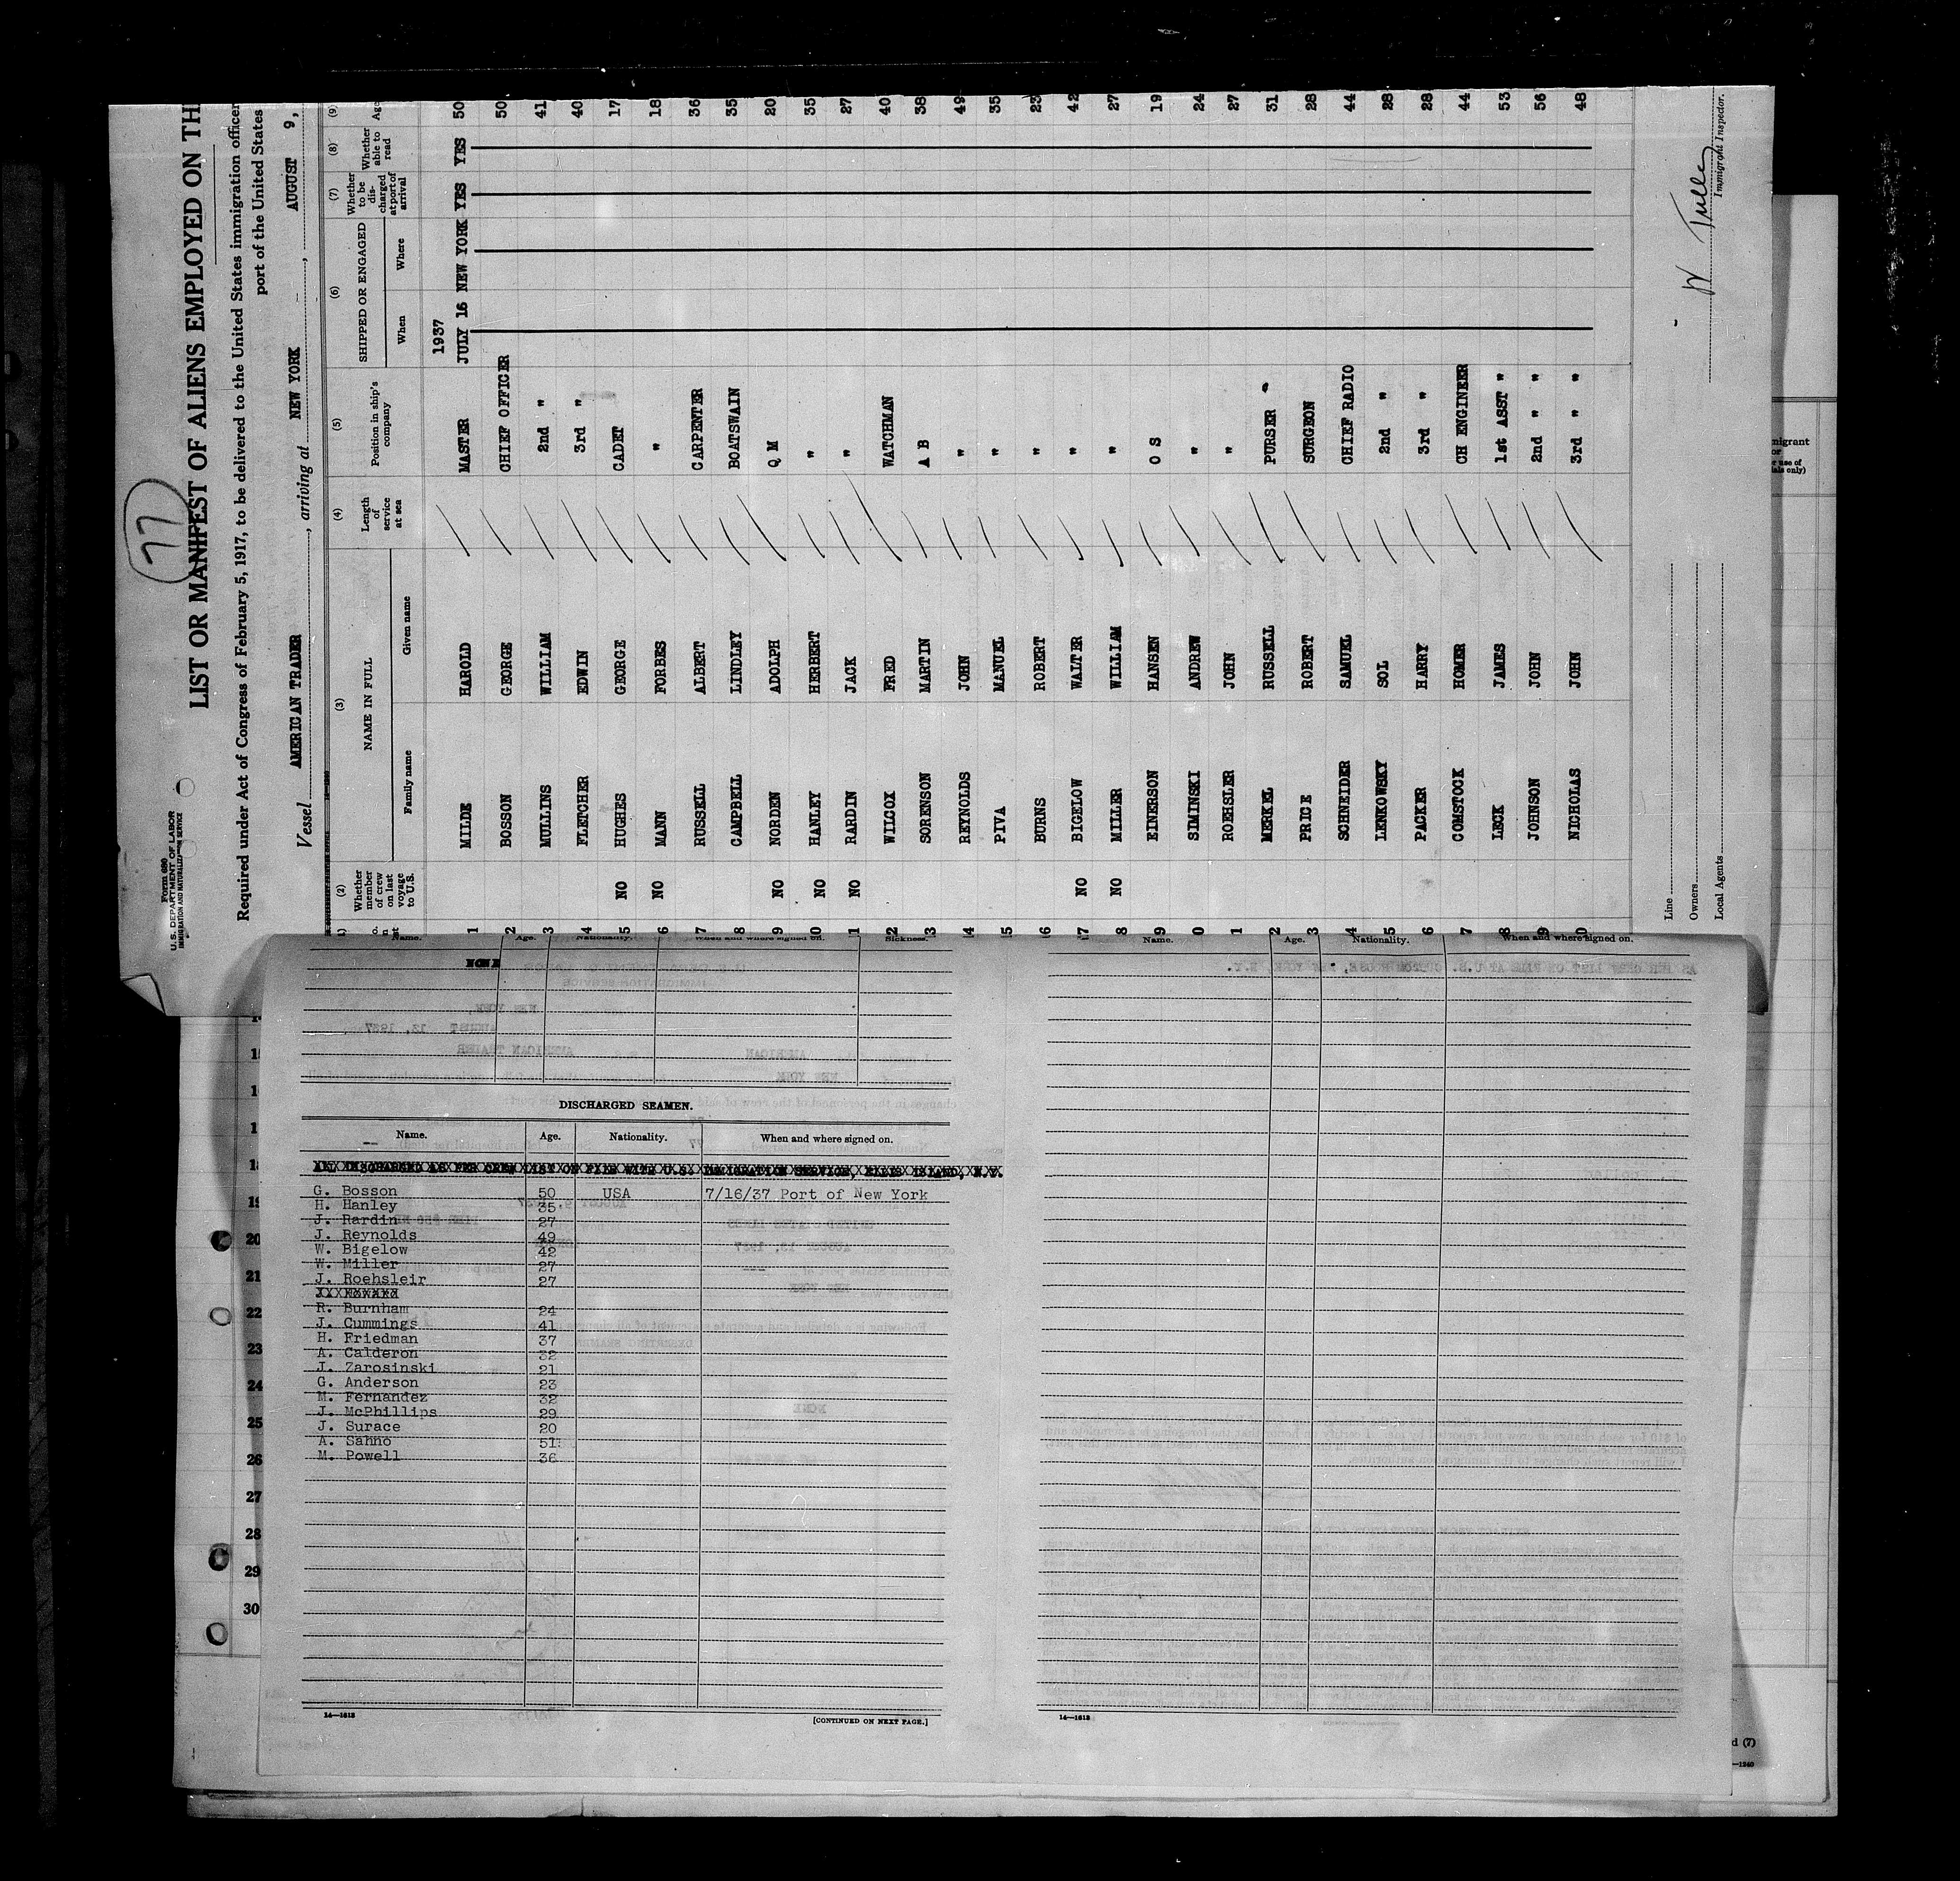 77
Form 680
U. S. DEPARTMENT OF LABOR
IMMIGRATION AND NATURALIZATION SERVICE
LIST OR MANIFEST OF ALIENS EMPLOYED ON TH
Required under Act of Congress of February 5, 1917, to be delivered to the United States immigration officer
port of the United States
Vessel AMERICAN TRADER , arriving at NEW YORK , AUGUST 9,
(2) (3) (4) (5) (6) (7) (8) (9)
Whether member of crew on last voyage to U.S. NAME IN FULL Length of service at sea Position in ship's company SHIPPED OR ENGAGED Whether to be discharged at port of arrival Whether able to read Age
Family name Given name When Where
1937
1 MILDE HAROLD MASTER JULY 16 NEW YORK YES YES 50
2 BOSSON GEORGE CHIEF OFFICER 50
3 MULLINS WILLIAM 2nd " 41
4 FLETCHER EDWIN 3rd " 40
5 NO HUGHES GEORGE CADET 17
6 NO MANN FORBES " 18
7 RUSSELL ALBERT CARPENTER 36
8 CAMPBELL LINDLEY BOATSWAIN 35
9 NO NORDEN ADOLPH Q M 20
0 NO HANLEY HERBERT " 35
1 NO RARDIN JACK " 27
2 WILCOX FRED WATCHMAN 40
3 SORENSON MARTIN A B 38
4 REYNOLDS JOHN " 49
5 PIVA MANUEL " 35
6 BURNS ROBERT " 23
7 NO BIGELOW WALTER " 42
8 NO MILLER WILLIAM " 27
9 EINERSON HANSEN O S 19
0 SIMINSKI ANDREW " 24
1 ROEHSLER JOHN " 27
2 MERKEL RUSSELL PURSER 31
3 PRICE ROBERT SURGEON 28
4 SCHNEIDER SAMUEL CHIEF RADIO 44
5 LENKOWSKY SOL 2nd " 28
6 PACKER HARRY 3rd " 28
7 COMSTOCK HOMER CH ENGINEER 44
8 LECK JAMES 1st ASST " 53
9 JOHNSON JOHN 2nd " " 56
0 NICHOLAS JOHN 3rd " " 48
Line
Owners
Local Agents
Immigrant Inspector.
Name. Age. Nationality. When and where signed on. Sickness.
NONE
DISCHARGED SEAMEN.
Name. Age. Nationality. When and where signed on.
ALL DISCHARGED AS PER CREW LIST ON FILE WITH U.S. IMMIGRATION SERVICE, ELLIS ISLAND, N.Y.
G. Bosson 50 USA 7/16/37 Port of New York
H. Hanley 35
J. Rardin 27
J. Reynolds 49
W. Bigelow 42
W. Miller 27
J. Roehsleir 27
R. Burnham 24
J. Cummings 41
H. Friedman 37
A. Calderon 32
J. Zarosinski 21
G. Anderson 23
M. Fernandez 32
J. McPhillips 29
J. Surace 20
A. Sahno 51
M. Powell 36
14—1613
[CONTINUED ON NEXT PAGE.]
Name. Age. Nationality. When and where signed on.
14—1613
15
19
20
21
22
23
24
25
26
27
28
29
30
d (7)
—1240